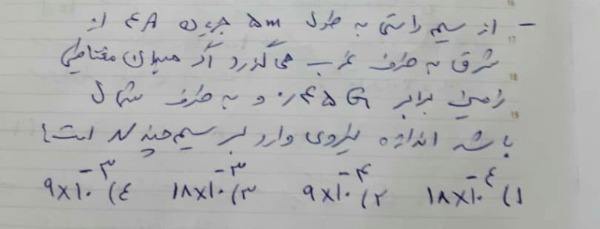 - از سیم راستی به طول ۵m جریان ۴A از
شرق به طرف غرب می گذرد اگر میدان مغناطیسی
زمین برابر ۰/۴۵G و به طرف شمال
باشد اندازه نیروی وارد بر سیم چند است؟
۱) ۱۸×۱۰^-۴ ۲) ۹×۱۰^-۴ ۳) ۱۸×۱۰^-۳ ۴) ۹×۱۰^-۳